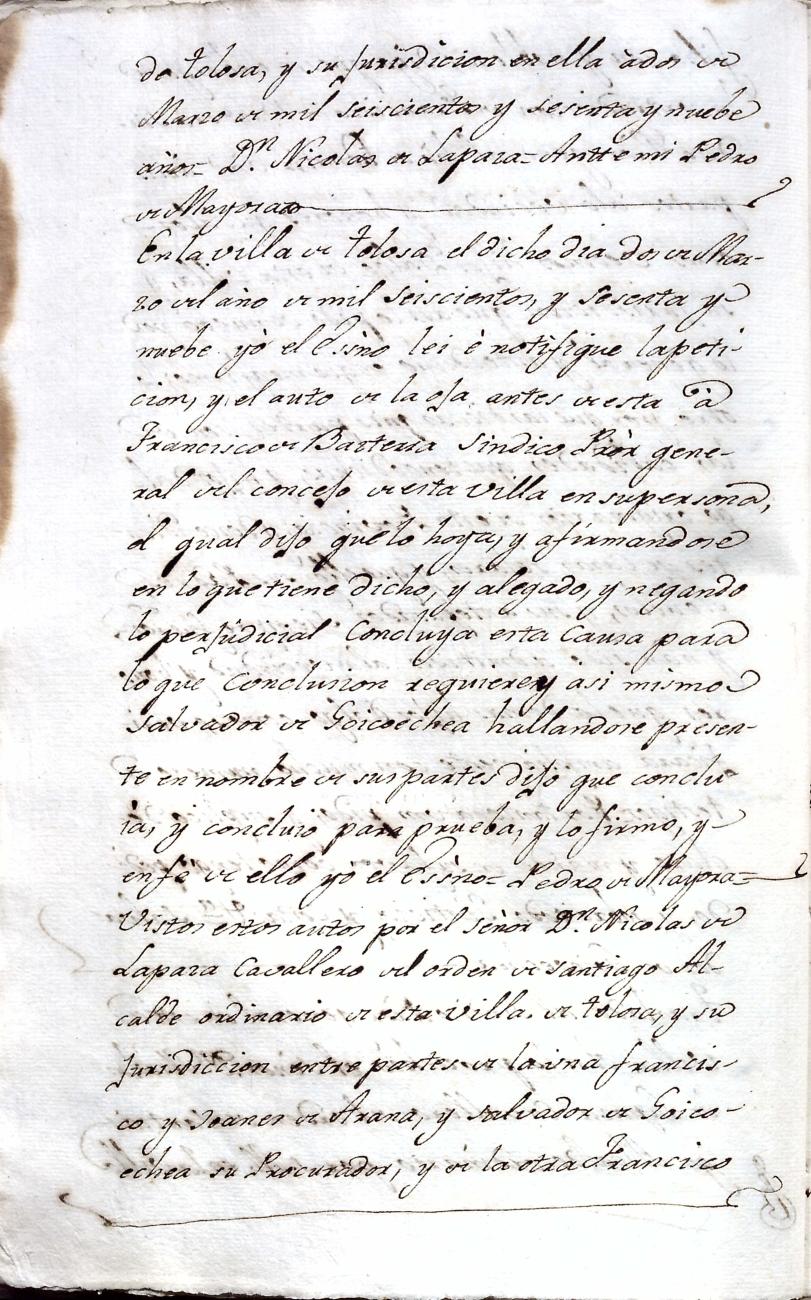 de tolosa, y su Jurisdicion en ella à dos de
Marzo de mil seiscientos y sesenta y nuebe
años- Dn. Nicolas de Lapaza= Antte mi Pedro
de Mayoraz
En la villa de tolosa el dicho dia dos de Mar-
zo del año de mil seiscientos, y sesenta y
nuebe yò el Essno lei è notifique la peti-
cion, y el auto de la oja antes de esta à
Francisco de Basterra Sindico Pròr gene-
ral del concejo de esta villa en su persona,
el qual dijo que lo hoya, y afirmandose
en lo que tiene dicho, y alegado, y negando
lo perjudicial Concluya esta Causa para
lo que Conclusion requiere y asi mismo
Salvador de Goicoechea hallandose presen-
te en nombre de sus partes dijo que conclu
ia, y concluio para prueba, y lo firmo, y
en fè de ello yò el Essno= Pedro de Mayora=
Vistos estos autos por el señor Dn. Nicolas de
Lapaza Cavallero del orden de Santiago Al-
calde ordinario de esta villa. de tolosa, y su
Jurisdiccion entre partes de la una francis-
co y Joanes de Arana, y salvador de Goico-
echea su Procurador, y de la otra Francisco